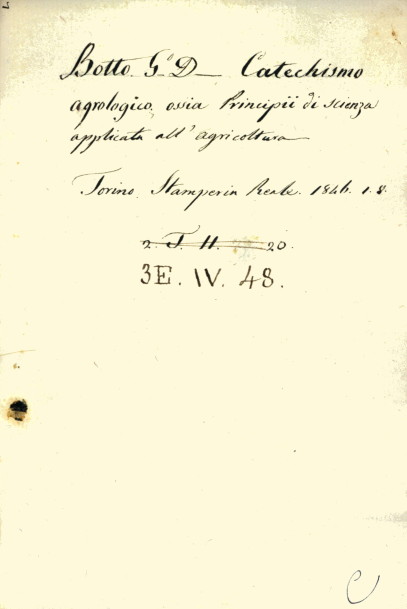 Botto G.º D— Catechismo
agrologico, ossia Principii di scienza
applicata all' agricoltura—
Torino, Stamperia Reale. 1846. 1. 8.
2. T. H. 20.
3E. IV. 48.